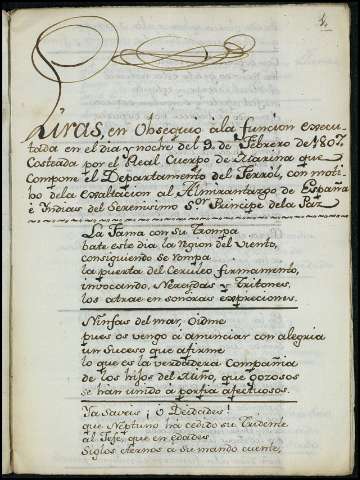 1.
Liras, en Obsequio ála funcion execu-
tada en el dia y noche del 9. de Febrero de 1807
Costeada por el Real Cuerpo de Marina que
Compone el Departamento del Ferrol, con moti-
bo dela Exaltacion al Almirantazgo de España
é Indias del Serenisimo Sor. Principe dela Paz
La Fama con su Trompa
bate este dia la Region del Viento,
consiguiendo se rompa
la puerta del Ceruleo firmamento,
invocando, Nereydas y Tritones,
los atrae en sonoras expreciones.
Ninfas del mar, Oidme
pues os vengo á anunciar con alegria
un Suceso que afirme
lo que es la verdadera Compañia
de los hijos del Miño, que gozosos
se han unido á porfia afectuosos.
Ya Saveis ¡ O Deidades !
que Neptuno ha cedido su Tridente
al Jefe, que en edades
Siglos eternos a su mando cuente,